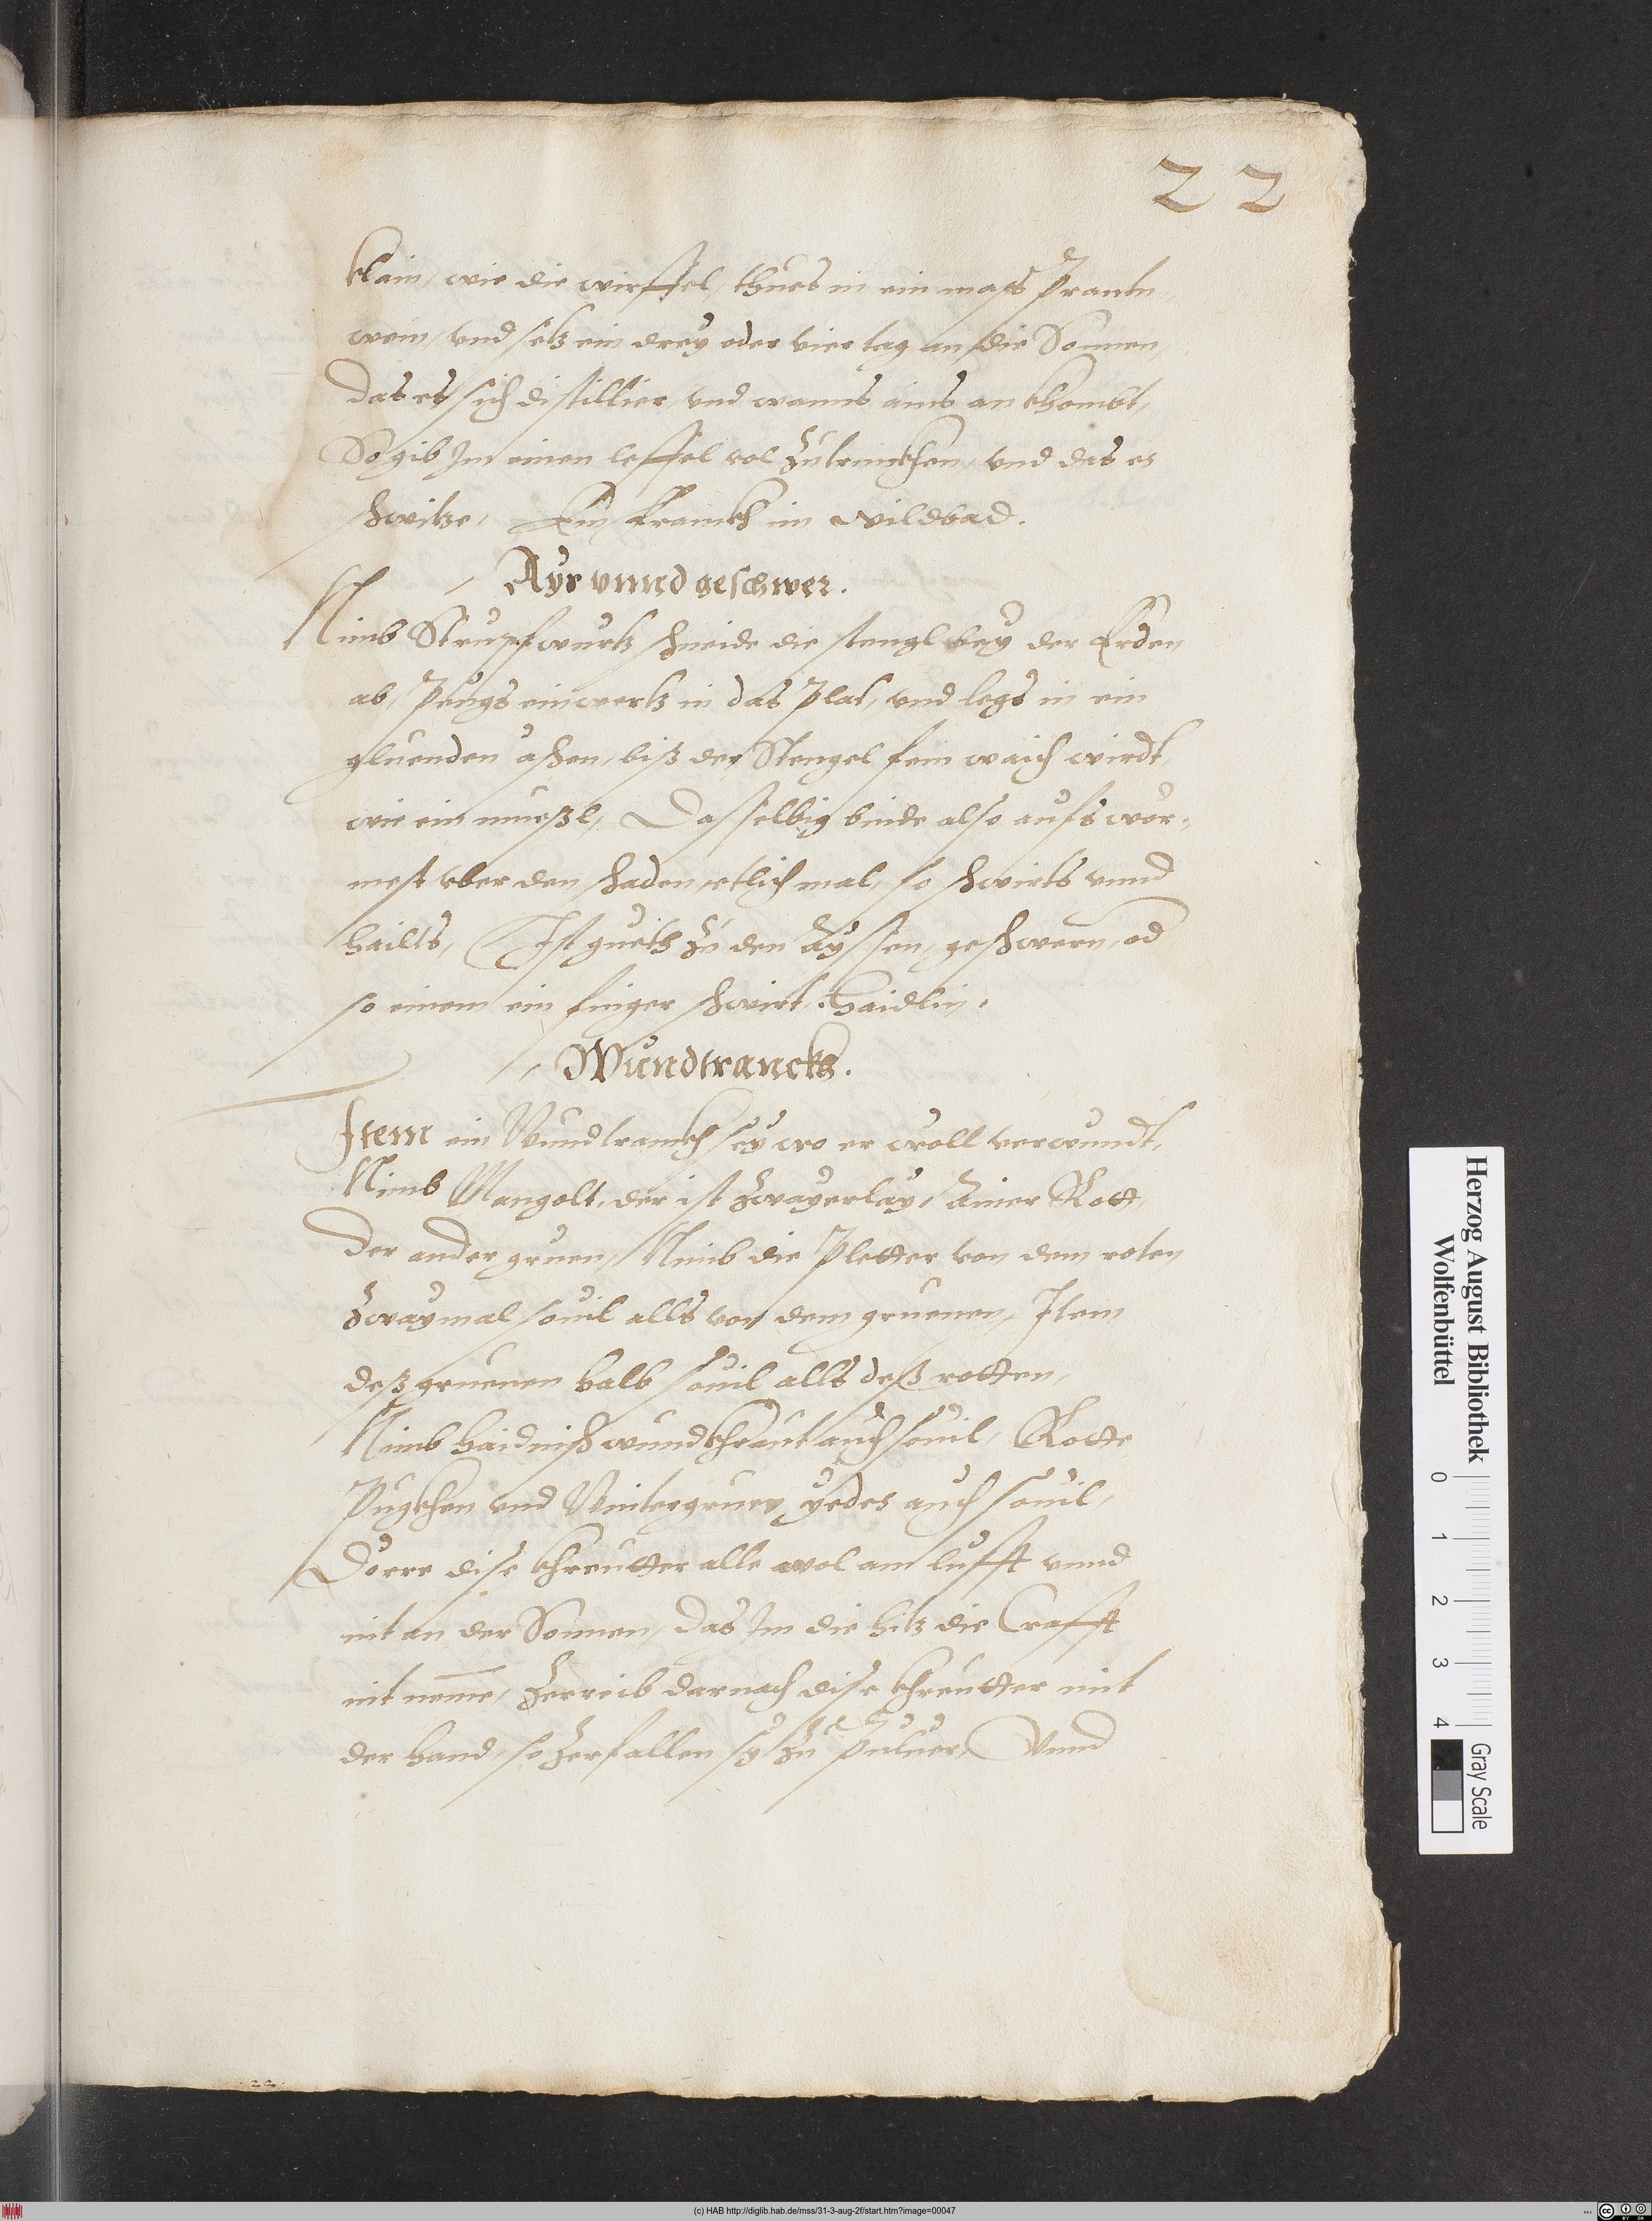 22
klain, wie die wirffel, thues in ein mass Prantn
wein, vnd setz ein drey oder vier tag an die Sonnen,
das es sich distillier, vnd wanns ains an khombt,
So gib Im einen leffel vol zutrinckhen, vnd das er
schwitze, Ein kranckh im wildbad.
Ayr vnnd geschwer.
Nimb Strupfwurtz schneide die stengl bey der Erden
ab, einwertz in das Plat, vnd legs in ein
gluenden aschen, biß der Stengel fein waich wirdt,
wie ein muesßl, Dasselbig binde also aufs wör,
mest vber den schaden etlich mal, so schwirts vnnd
hailts, Ist gueth zu den Ayssen, geschwern, od
so einem ein finger schwirt. Haidlin.
Wundtranckh.
Item ein Wundtranckh sey wo er woll verwundt,
Nimb Mangolt, der ist zwayerlay, Ainer Rott,
der ander gruen, Nimb die Pletter von dem roten
zwaymal souil alls von dem gruenen, Item
deß gruenen halb souil alls deß rotten,
Nimb haidnisch wundkhraut auch souil, Rotte
Puckhen vnd Wintergruen yedes auch souil,
Dörre dise khreutter alle wol am lufft vnnd
nit an der Sonnen, das Im die hitz die Crafft
nit neme, Zerreib darnach dise khreutter mit
der hand, so zerfallen sy zu Puluer, Vnnd
Herzog August Bibliothek
Wolfenbüttel
0 1 2 3 4
Gray Scale
(c) HAB http://diglib.hab.de/mss/31-3-aug-2f/start.htm?image=00047